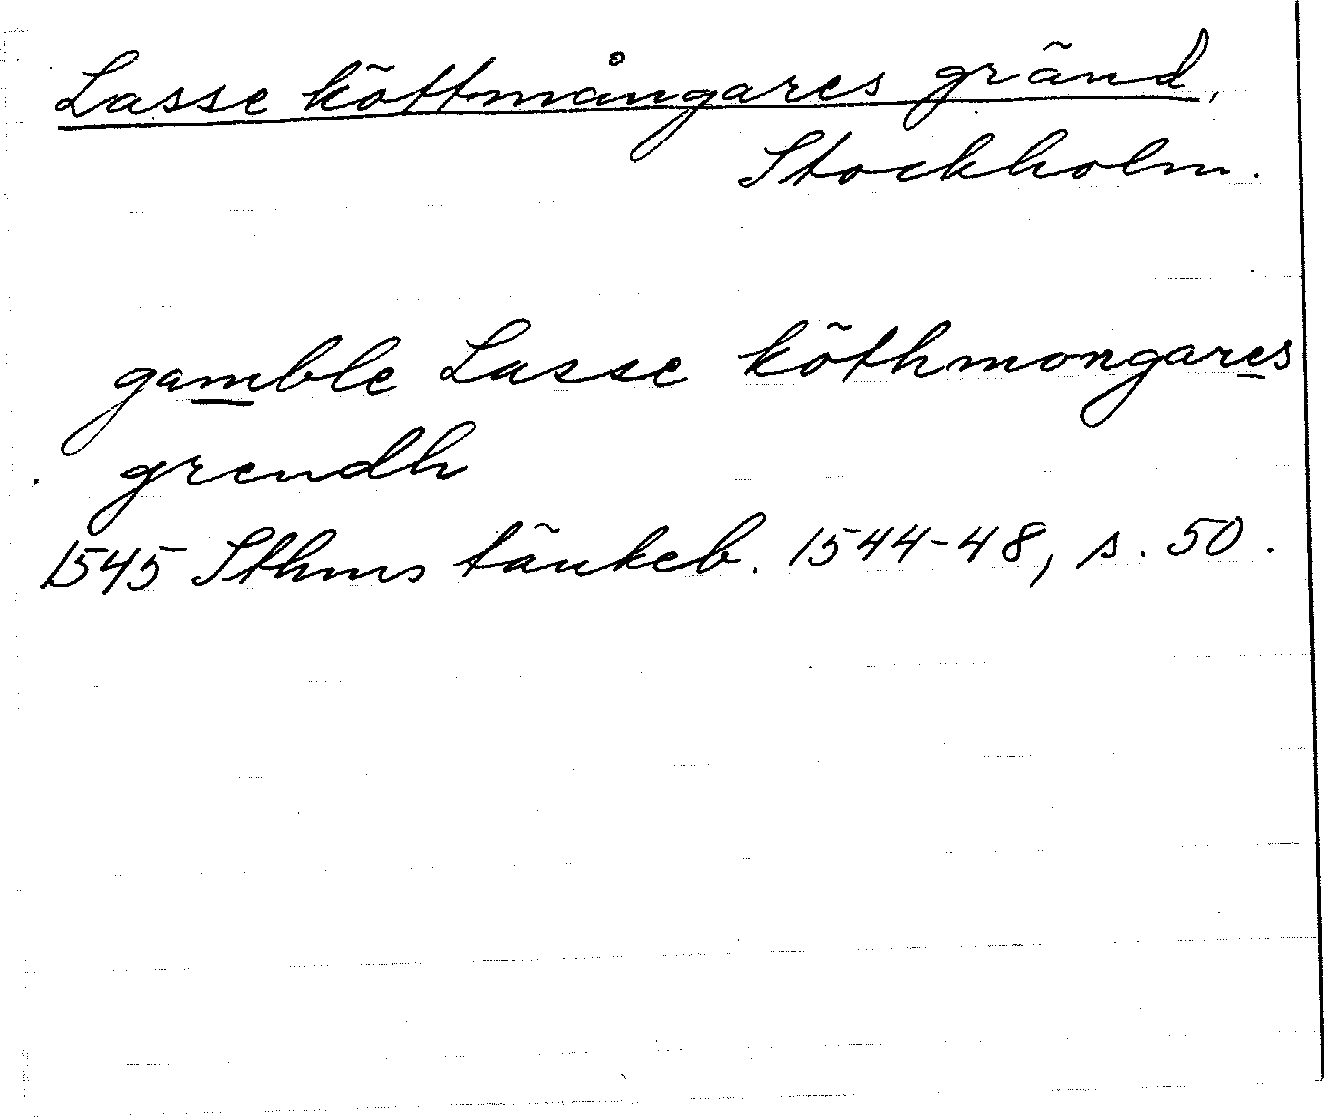 Lasse köttmångares gränd,
Stockholm.
gamble Lasse köthmongares
grendh
1545 Sthms tänkeb. 1544-48, s. 50.